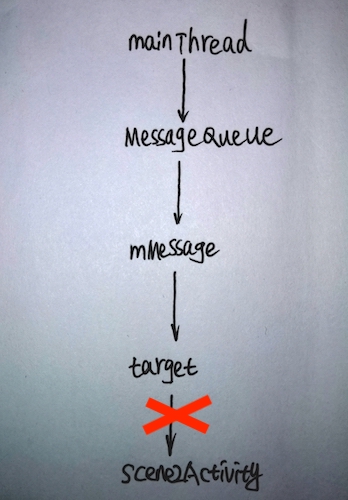 mainThread
MessageQueue
mMessage
target
Scene2Activity